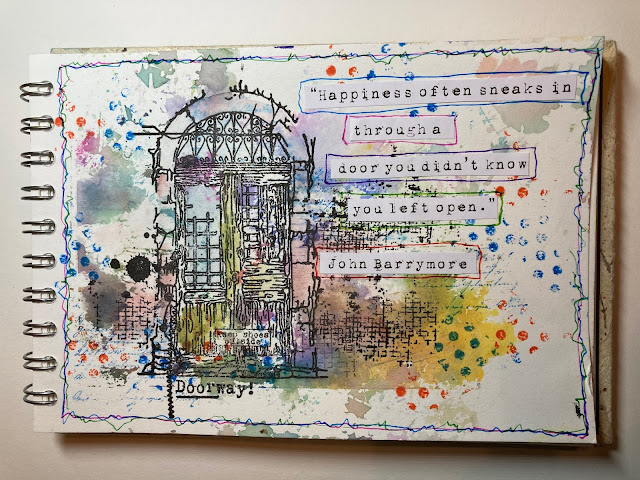 “Happiness often sneaks in
through a
door you didn't know
you left open.”
John Barrymore
shoes
Doorway!